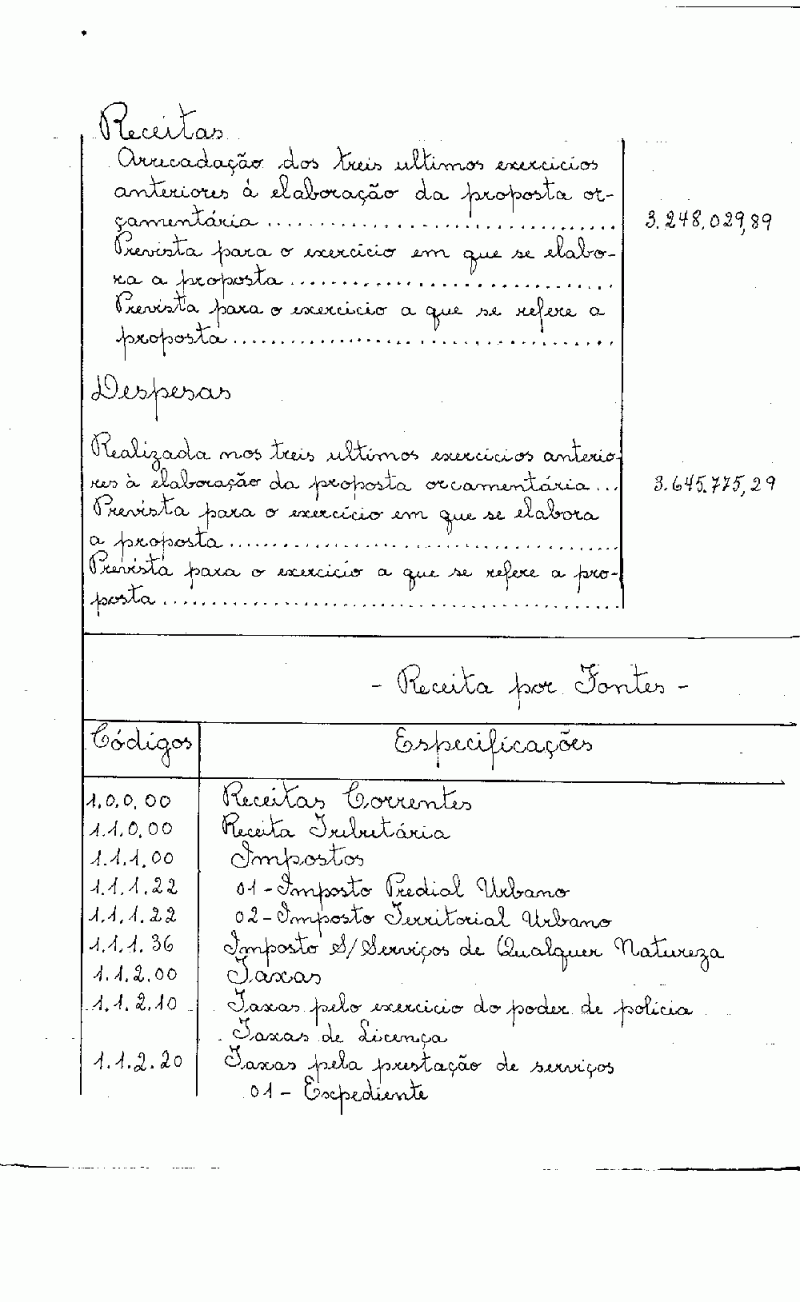 Receitas
Arrecadação dos treis ultimos exercicios
anteriores à elaboração da proposta or-
çamentária .................................. 3.248.029,89
Prevista para o exercício em que se elabo-
ra a proposta ................................
Prevista para o exercicio a que se refere a
proposta .....................................
Despesas
Realizada nos treis ultimos exercícios anterio-
res à elaboração da proposta orcamentária ... 3.645.775,29
Prevista para o exercício em que se elabora
a proposta .....................................
Prevista para o exercicio a que se refere a pro-
posta ...........................................
- Receita por Fontes -
Códigos Especificações
1.0.0.00 Receitas Correntes
1.1.0.00 Receita Tributária
1.1.1.00 Impostos
1.1.1.22 01 - Imposto Predial Urbano
1.1.1.22 02 - Imposto Territorial Urbano
1.1.1.36 Imposto S/ Serviços de Qualquer Natureza
1.1.2.00 Taxas
1.1.2.10 Taxas pelo exercicio do poder de polícia
Taxas de Licença
1.1.2.20 Taxas pela prestação de serviços
01 - Expediente